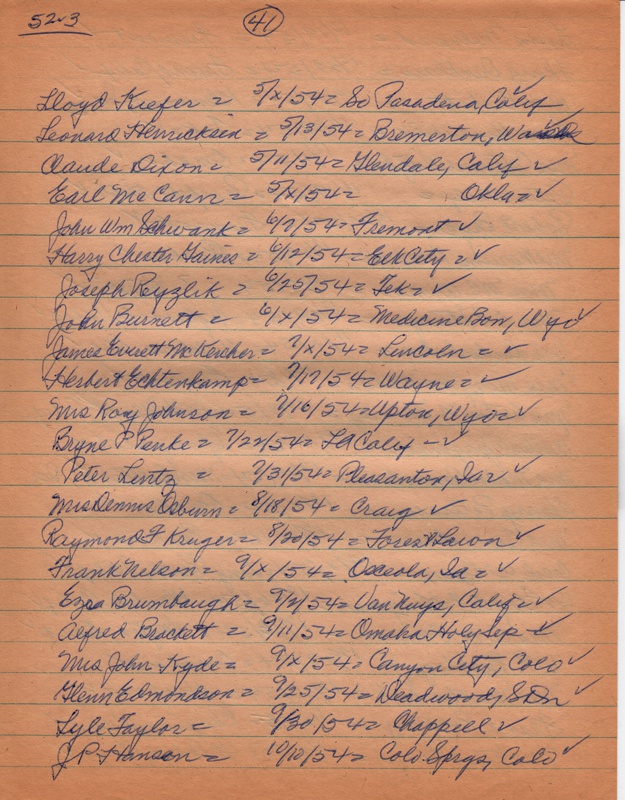 52-3
41
Lloyd Kiefer = 5/x/54 = So Pasadena, Calif ✓
Leonard Henricksen = 5/13/54 = Bremerton, Wa
Claude Dixon = 5/11/54 = Glendale, Calif ✓
Earl McCann = 5/x/54 = Okla = ✓
John Wm Schwank = 6/7/54 = Fremont ✓
Harry Chester Gaines = 6/12/54 = Elk City = ✓
Joseph Ryzlik = 6/25/54 = Tek = ✓
John Burnett = 6/x/54 = Medicine Bow, Wyo ✓
James Everett McKercher = 7/x/54 = Lincoln = ✓
Herbert Echtenkamp = 7/17/54 = Wayne = ✓
Mrs Roy Johnson = 7/16/54 = Upton, Wyo = ✓
Bryne P Penke = 7/22/54 = LA Calif - ✓
Peter Lentz = 7/31/54 = Pleasanton, Ia ✓
Mrs Dennis Osburn = 8/18/54 = Craig ✓
Raymond F Kruger = 8/20/54 = Forest Lawn ✓
Frank Nelson = 9/x/54 = Osceola, Ia = ✓
Ezra Brumbaugh = 9/2/54 = Van Nuys, Calif = ✓
Alfred Brackett = 9/11/54 = Omaha Holy Sep ✓
Mrs John Kyde = 9/x/54 = Canyon City, Colo ✓
Glenn Edmondson = 9/25/54 = Deadwood, S Dn ✓
Lyle Taylor = 9/30/54 = Chappell ✓
J P Hansen = 10/10/54 = Colo Sprgs, Colo ✓